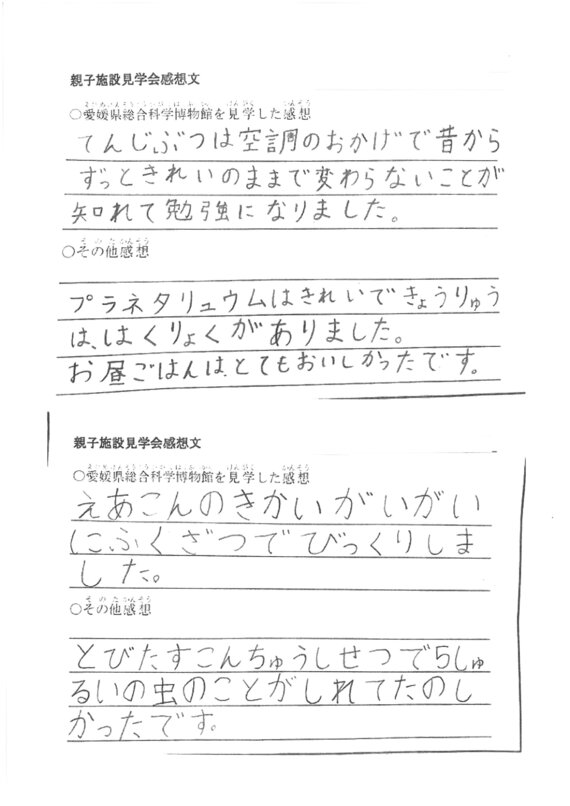 親子施設見学会感想文
○愛媛県総合科学博物館を見学した感想
てんじぶつは空調のおかげで昔から
ずっときれいのままで変わらないことが
知れて勉強になりました。
○その他感想
プラネタリュウムはきれいできょうりゅう
は、はくりょくがありました。
お昼ごはんは、とてもおいしかったです。
親子施設見学会感想文
○愛媛県総合科学博物館を見学した感想
えあこんのきかいがいがい
にふくざつでびっくりしま
した。
○その他感想
とびたすこんちゅうしせつで5しゅ
るいの虫のことがしれてたのし
かったです。